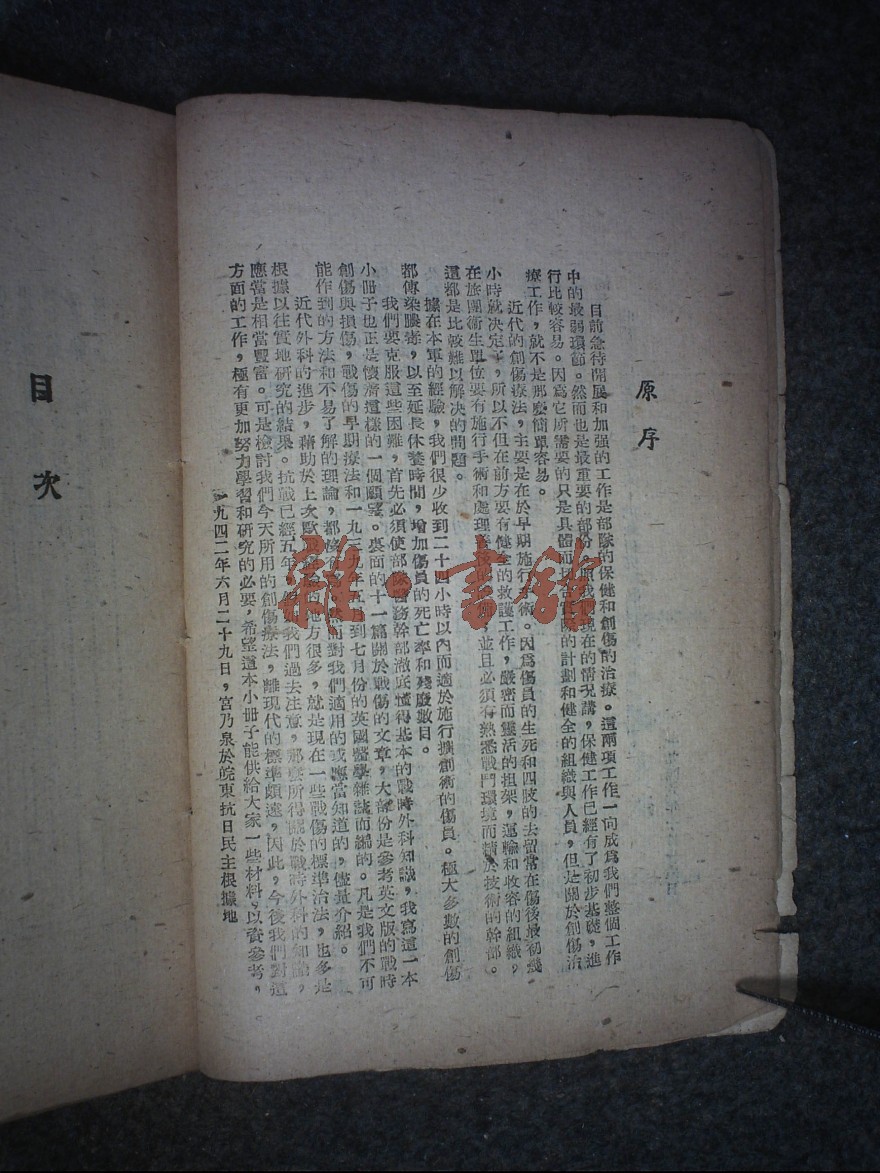 原序
目前急待開展和加强的工作是部隊的保健和創傷的治療。這兩項工作一向成爲我們整個工作
中的最弱環節。然而也是最重要的部份。照我們現在的情况講，保健工作已經有了初步基礎，進
行比較容易。因爲它所需要的只是具體而切合實際的計劃和健全的組織與人員，但是關於創傷治
療工作，就不是那麽簡單容易。
近代的創傷療法，主要是在於早期施行手術。因爲傷員的生死和四肢的去留常在傷後最初幾
小時就决定了，所以不但在前方要有健全的救護工作，嚴密而靈活的担架，運輸和收容的組織，
在旅團衛生單位要有施行手術和處理善後的，並且必須有熟悉戰鬥環境而精於技術的幹部。
這都是比較難以解决的問題。
據在本軍的經驗，我們很少收到二十四小時以內而適於施行擴創術的傷員。極大多數的創傷
都傳染膿毒，以至延長休養時間，增加傷員的死亡率和殘廢數目。
我們要克服這些困難，首先必須使部隊醫務幹部澈底懂得基本的戰時外科知識，我寫這一本
小冊子也正是懷着這樣的一個願望。裏面的十一篇關於戰傷的文章，大部份是參考英文版的戰時
創傷與損傷，戰傷的早期療法和一九三九年五月到七月份的英國醫學雜誌而編的。凡是我們不可
能作到的方法和不易了解的理論，都，而對我們適用的或應當知道的，儘量介紹。
近代外科的進步，藉助於上次歐戰經驗的地方很多，就是現在一些戰傷的標準治法，也多是
根據以往實地研究的結果。抗戰已經五年，我們過去注意，那麽所得關於戰時外科的知識，
應當是相當豐富。可是檢討我們今天所用的創傷療法，離現代的標準頗遠，因此，今後我們對這
方面的工作，極有更加努力學習和研究的必要，希望這本小冊子能供給大家一些材料，以資參考。
一九四二年六月二十九日，宮乃泉於皖東抗日民主根據地
目次
雜·書館